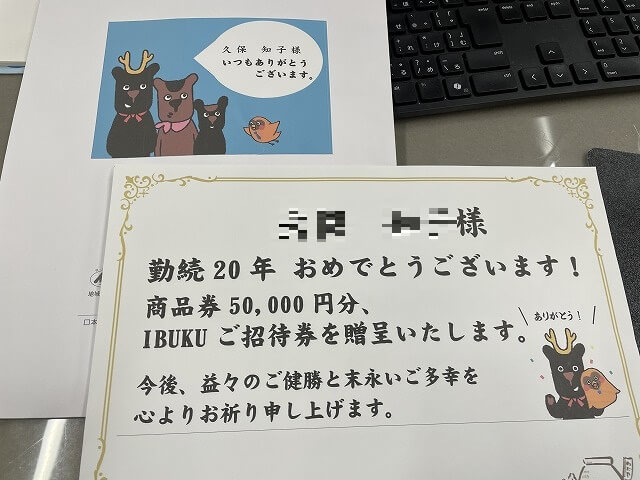 久保 知子様
いつもありがとう
ございます。
様
勤続20年 おめでとうございます！
商品券50,000円分、
IBUKUご招待券を贈呈いたします。
ありがとう！
今後、益々のご健勝と末永いご多幸を
心よりお祈り申し上げます。